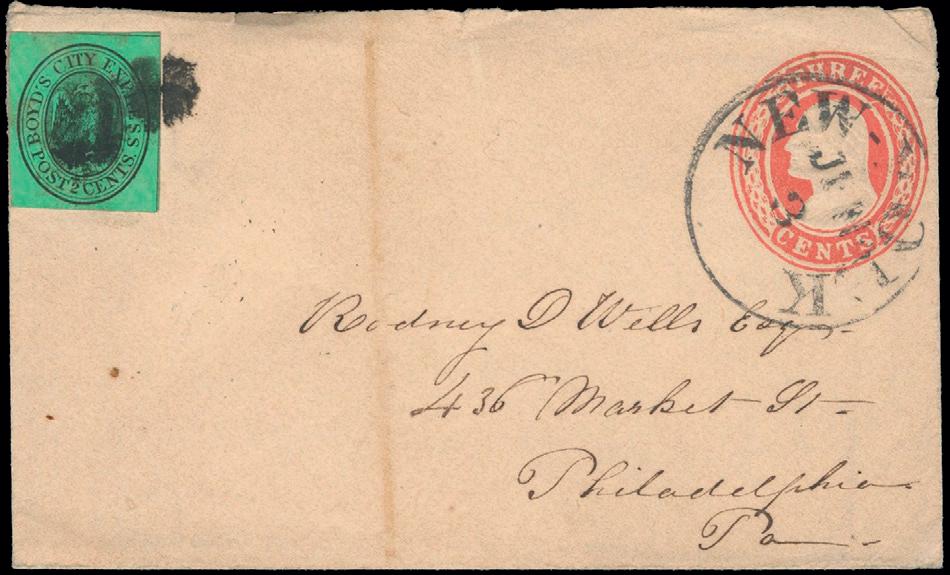 BOYD'S CITY EXPRESS
POST 2 CENTS.
THREE
CENTS
NEW-YORK
JUN
3
Rodney D Wells Esqr.
436 Market St-
Philadelphia
Pa-